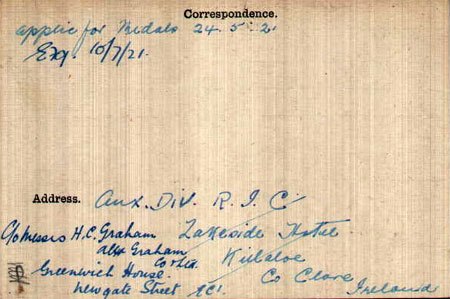 Correspondence.
applic for Medals 24.5.21
Exg. 10/7/21.
Address. Aux. Div. R.I.C
Lakeside Hotel
Killaloe
Co Clare
Ireland
c/o Messrs H.C. Graham
Graham
Co Ltd.
Greenwich House.
Newgate Street EC1.